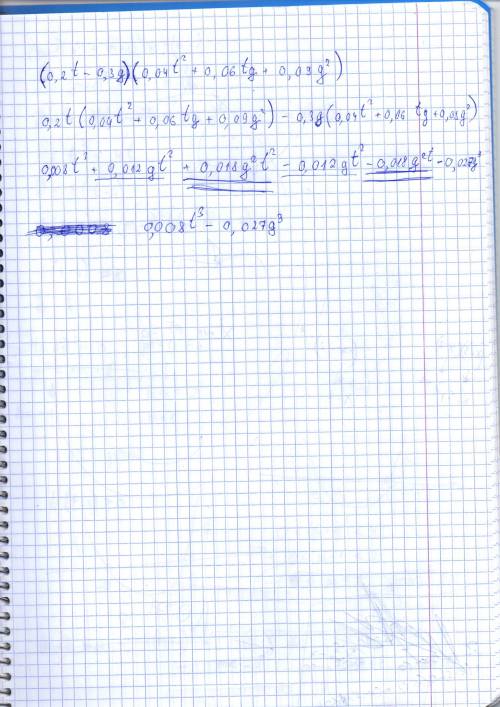 (0,2t - 0,3g)(0,04t² + 0,06tg + 0,09g²)
0,2t(0,04t² + 0,06tg + 0,09g²) - 0,3g(0,04t² + 0,06tg + 0,09g²)
0,008t³ + 0,012gt² + 0,018g²t² - 0,012gt² - 0,018g²t - 0,027g³
0,008t³ - 0,027g³